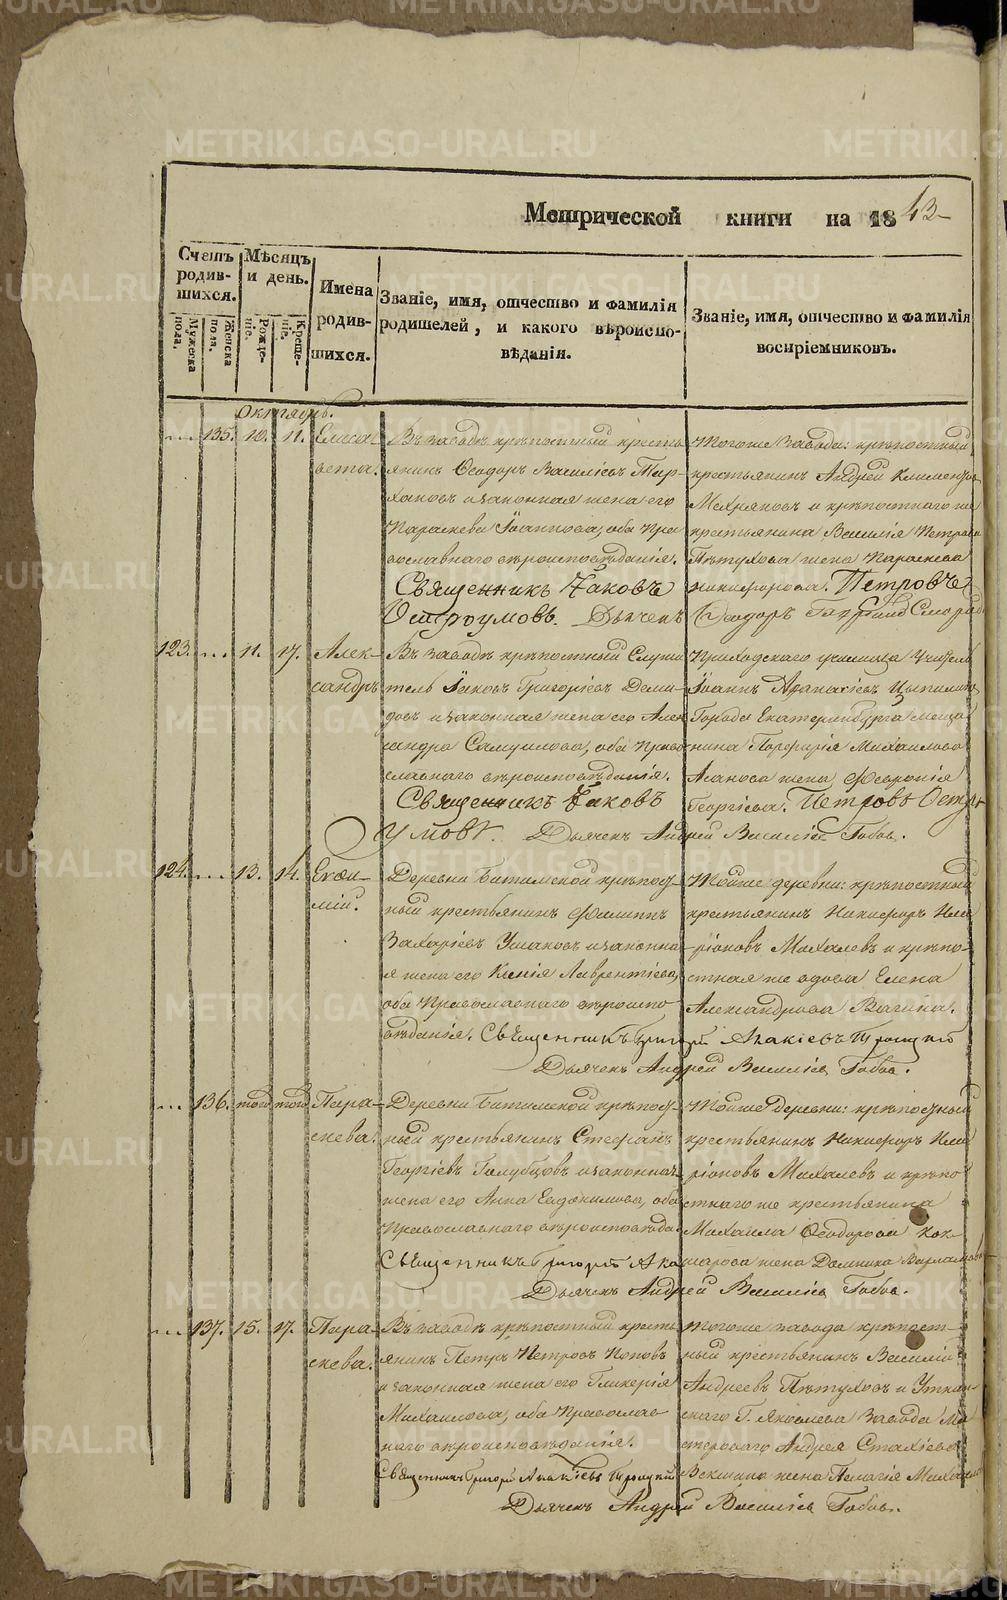 METRIKI.GASO-URAL.RU
Метрической книги на 1843
Счетъ родив- шихся.
Мужеска пола.
Женска пола.
Мѣсяцъ и день.
Рожде- ніе.
Креще- ніе.
Имена родив- шихся.
Званіе, имя, отчество и фамилія
родителей, и какого вѣроиспо-
вѣданія.
Званіе, имя, отчество и фамилія
воспріемниковъ.
Октябрь.
135. 10. 11. Елиса-
вета.
Въ заводѣ крѣпостный кресть-
янинъ Ѳеодоръ Василіевъ Тар-
хановъ и законная жена его
Параскева Іоаннова, оба Пра-
вославнаго вѣроисповѣданія.
Священникъ Іаковъ
Остроумовъ. Дьячекъ
Тогоже завода: крѣпостный
крестьянинъ Андрей Климентов
и крѣпостнаго же
крестьянина Василія Петрова
Пѣтухова жена Параскева
Никифорова. Петровъ
Ѳеодоръ
123. 11. 17. Алек-
сандръ
Въ заводѣ крѣпостный Служи-
тель Іаковъ Григоріевъ Деми-
довъ и законная жена его Алек
сандра Самуилова, оба Право
славнаго вѣроисповѣданія.
Священникъ Іаковъ
Приходскаго училища Учитель
Іоаннъ Аѳанасіевъ Цыпилинъ
Города Екатеринбурга меща-
нина Порфирія Михайлова
жена Феѵронія
Георгіева. Петровъ Остро
умовъ. Дьячекъ Андрей Василіев Бабов.
124. 13. 14. Евѳи-
мій.
Деревни Битимской крѣпост-
ный крестьянинъ Филиппъ
Захаріевъ Ушаковъ и законна-
я жена его Ксенія Лаврентіева,
оба Православнаго вѣроиспо-
вѣданія. Священникъ Григорій Акакіевъ Троицкій
Тойже деревни: крѣпостный
крестьянинъ Никифоръ Ила-
ріоновъ Михалевъ и крѣпо-
стная же вдова Елена
Александрова Вагина.
Дьячекъ Андрей Василіев Бабов.
136. того того Пара-
скева.
Деревни Битимской крѣпост-
ный крестьянинъ Стефанъ
Георгіевъ Голубцовъ и законная
жена его Анна Евдокимова, оба
Православнаго вѣроисповѣда-
Священникъ Григорій Ака
Тойже Деревни: крѣпостный
крестьянинъ Никифоръ Ила-
ріоновъ Михалевъ и крѣпо-
стнаго же крестьянина
Михаила Ѳеодорова Кок-
шарова жена Домника Варлаамова
Дьячекъ Андрей Василіев Бабов.
137. 15. 17. Пара-
скева.
Въ заводѣ крѣпостный кресть-
янинъ Петръ Петровъ Поповъ
и законная жена его Гликерія
Михаилова, оба Православ-
наго вѣроисповѣданія.
Священникъ Григорій Акакіевъ Троицкій
Тогоже завода крѣпост-
ный крестьянинъ Василій
Андреевъ Пѣтуховъ и Уткин-
скаго Г. Яковлева Завода Ма-
стероваго Андрея Стахіева
Векшина жена Пелагія Михаил
Дьячекъ Андрей Василіев Бабов.